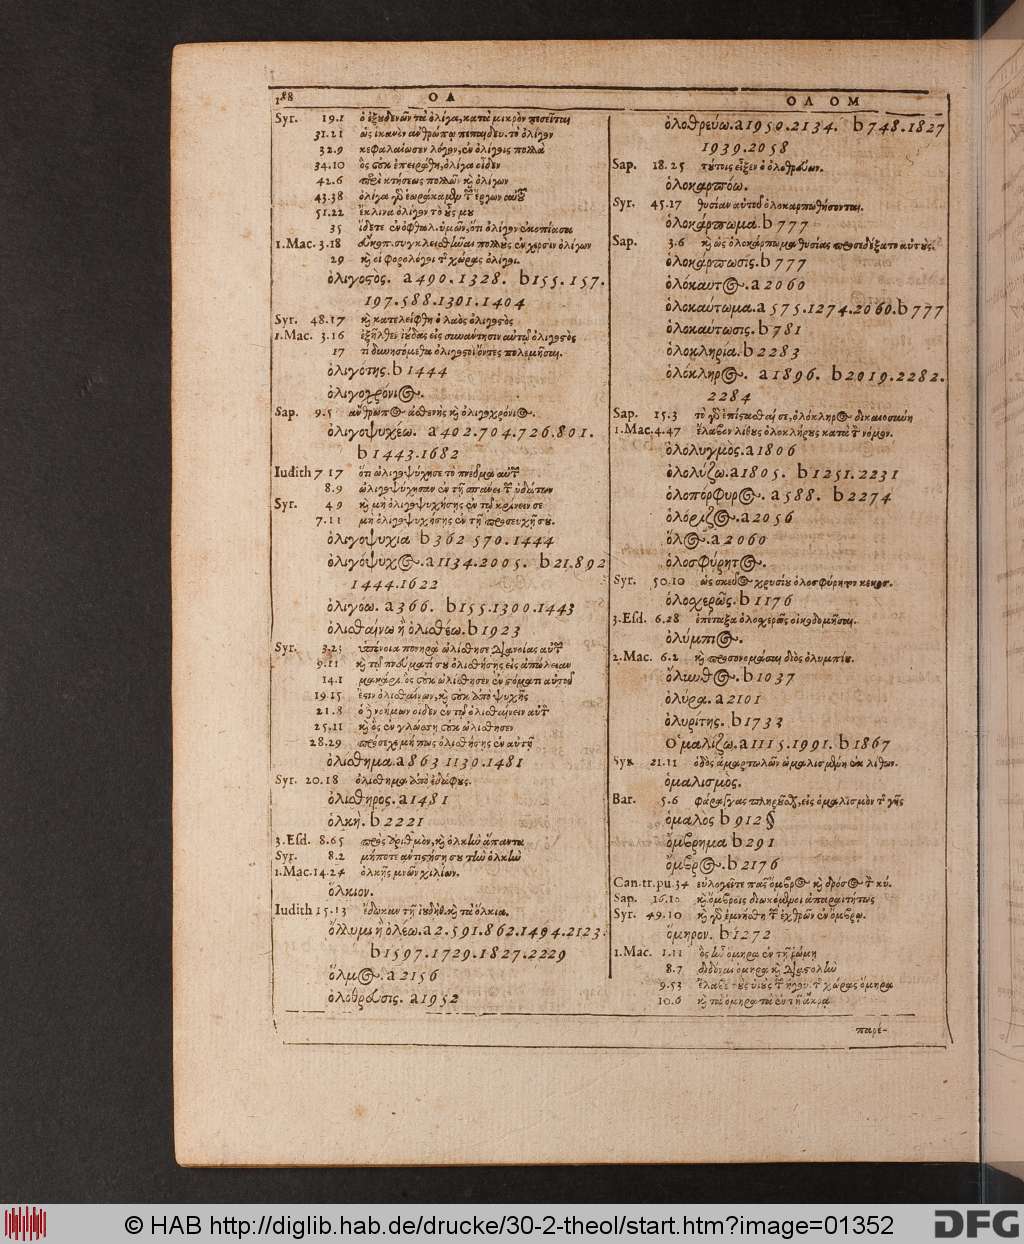 188
ΟΛ
ΟΛ ΟΜ
Syr. 19.1 ὁ ἐξουδενῶν τὰ ὀλίγα, κατὰ μικρὸν πεσεῖται
31.21 ὡς ἱκανὸν ἀνθρώπῳ πεπαιδευ. τὸ ὀλίγον
32.9 κεφαλαίωσον λόγον, ἐν ὀλίγοις πολλὰ
34.10 ὃς οὐκ ἐπειράθη, ὀλίγα οἶδεν
42.6 περὶ κτήσεως πολλῶν καὶ ὀλίγων
43.38 ὀλίγα γὸ ἑωράκαμεν τῶν ἔργων αὐτοῦ
51.22 ἔκλινα ὀλίγον τὸ οὖς μου
35 ἴδετε ἐν ὀφθαλ. ὑμῶν, ὅτι ὀλίγον ἐκοπίασα
1.Mac. 3.18 συγκλεισθῆναι πολλοὺς ἐν χερσὶν ὀλίγων
29 καὶ οἱ φορολόγοι τ χώρας ὀλίγοι.
ὀλιγοςὸς. a 490.1328. b 155.157.
197.588.1301.1404
Syr. 48.17 καὶ κατελείφθη ὁ λαὸς ὀλιγοςὸς
1.Mac. 3.16 ἐξῆλθεν ἰούδας εἰς συνάντησιν αὐτῷ ὀλιγοςὸς
17 τί δυνησόμεθα ὀλιγοςοὶ ὄντες πολεμῆσαι.
ὀλιγότης. b 1444
ὀλιγοχρόνιος.
Sap. 9.5 ἄνθρωπος ἀσθενὴς καὶ ὀλιγοχρόνιος.
ὀλιγοψυχέω. a 402.704.726.801.
b 1443.1682
Iudith 7 17 ὅτι ὠλιγοψύχησε τὸ πνεῦμα αὐτῶν
8.9 ὠλιγοψύχησαν ἐν τῇ σπάνει τ ὑδάτων
Syr. 4 9 καὶ μὴ ὀλιγοψυχήσῃς ἐν τῷ κρίνειν σε
7.11 μὴ ὀλιγοψυχήσῃς ἐν τῇ προσευχῇ σου.
ὀλιγοψυχία b 362 570.1444
ὀλιγόψυχος. a 1134.2005. b 21.892
1444.1622
ὀλιγοω. a 366. b 155.1300.1443
ὀλισθαίνω ἢ ὀλισθέω. b 1923
Syr. 3.23 ὑπόνοια πονηρὰ ὠλίσθησε διανοίας αὐτῶν
9.11 καὶ τῷ πνεύματί σου ὀλισθήσῃς εἰς ἀπώλειαν
14.1 μακάρι. ὃς οὐκ ὠλίσθησεν ἐν ςόματι αὐτοῦ
19.15 ἔςιν ὀλισθαίνων, καὶ οὐκ ἀπὸ ψυχῆς
21.8 ὁ νοήμων οἶδεν ἐν τῷ ὀλισθαίνειν αὐτὸν
25.11 καὶ ὃς ἐν γλώσσῃ οὐκ ὠλίσθησεν
28.29 πρόσεχε μήπως ὀλισθήσῃς ἐν αὐτῇ
ὀλίσθημα. a 863 1130.1481
Syr. 20.18 ὀλίσθημα ἀπὸ ἐδάφους.
ὀλίσθηρος. a 1481
ὁλκὴ. b 2221
3.Esd. 8.65 πρὸς ἀριθμὸν, καὶ ὁλκὴν ἅπαντα
Syr. 8.2 μήποτε ἀντιςήσῃ σου τὴν ὁλκὴν
1.Mac. 14.24 ὁλκῆς μνῶν χιλίων.
ὅλκιον.
Iudith 15.13 ἔδωκαν τῇ ἰουδὴθ. καὶ τὰ ὅλκια.
ὄλλυμι ἢ ὀλέω. a 2.591.862.1494.2123.
b 1597.1729.1827.2229
ὅλμος. a 2156
ὀλόθρευσις. a 1952
ὀλοθρεύω. a 1950.2134. b 748.1827
1939.2058
Sap. 18.25 τούτοις εἶξεν ὁ ὀλοθρεύων.
ὁλοκαρπόω.
Syr. 45.17 θυσίαι αὐτοῦ ὁλοκαρπωθήσονται.
ὁλοκάρπωμα. b 777
Sap. 3.6 καὶ ὡς ὁλοκάρπωμα θυσίας προσεδέξατο αὐτοὺς.
ὁλοκάρπωσις. b 777
ὁλόκαυτος. a 2060
ὁλοκαύτωμα. a 575.1274.2060. b 777
ὁλοκαύτωσις. b 781
ὁλοκληρία. b 2283
ὁλόκληρος. a 1896. b 2019.2282.
2284
Sap. 15.3 τὸ γὸ ἐπίςασθαί σε, ὁλόκληρος δικαιοσύνη
1.Mac. 4.47 ἔλαβον λίθους ὁλοκλήρους κατὰ τ νόμον.
ὀλολυγμὸς. a 1806
ὀλολύζω. a 1805. b 1251.2231
ὁλοπόρφυρος. a 588. b 2274
ὁλόριζος. a 2056
ὅλος. a 2060
ὁλοσφύρητος.
Syr. 50.10 ὡς σκεῦος χρυσίου ὁλοσφύρητον κεκοσ.
ὁλοσχερῶς. b 1176
3.Esd. 6.28 ἐπέταξα ὁλοσχερῶς οἰκοδομῆσαι.
ὀλύμπιος.
2.Mac. 6.2 καὶ προσονομάσαι διὸς ὀλυμπίου.
ὄλυνθος. b 1037
ὀλύρα. a 2101
ὀλυρίτης. b 1733
Ὁμαλίζω. a 1115.1991. b 1867
Syr. 21.11 ὁδὸς ἁμαρτωλῶν ὡμαλισμένη ἐκ λίθων.
ὁμαλισμὸς.
Bar. 5.6 φάραγγας πληροῦσθ, εἰς ὁμαλισμὸν τ γῆς
ὁμαλος b 912 §
ὄμβρημα b 291
ὄμβρος. b 2176
Can. tr. pu. 34 εὐλογεῖτε πᾶς ὄμβρος καὶ δρόσος τ κύ.
Sap. 16.16 καὶ ὄμβροις διωκόμενοι ἀπαραιτήτοις
Syr. 49.10 καὶ γὸ ἐμνήσθη τ ἐχθρῶν ἐν ὄμβρῳ.
ὅμηρον. b 1272
1.Mac. 1.11 ὃς ἦν ὅμηρα ἐν τῇ ῥώμῃ
8.7 διδόναι ὅμηρα καὶ διαςολὴν
9.53 ἔλαβε τοὺς υἱοὺς τ ἡγου. τ χώρας ὅμηρα
10.6 καὶ τὰ ὅμηρα τὰ ἐν τῇ ἄκρᾳ
παρέ-
© HAB http://diglib.hab.de/drucke/30-2-theol/start.htm?image=01352
DFG